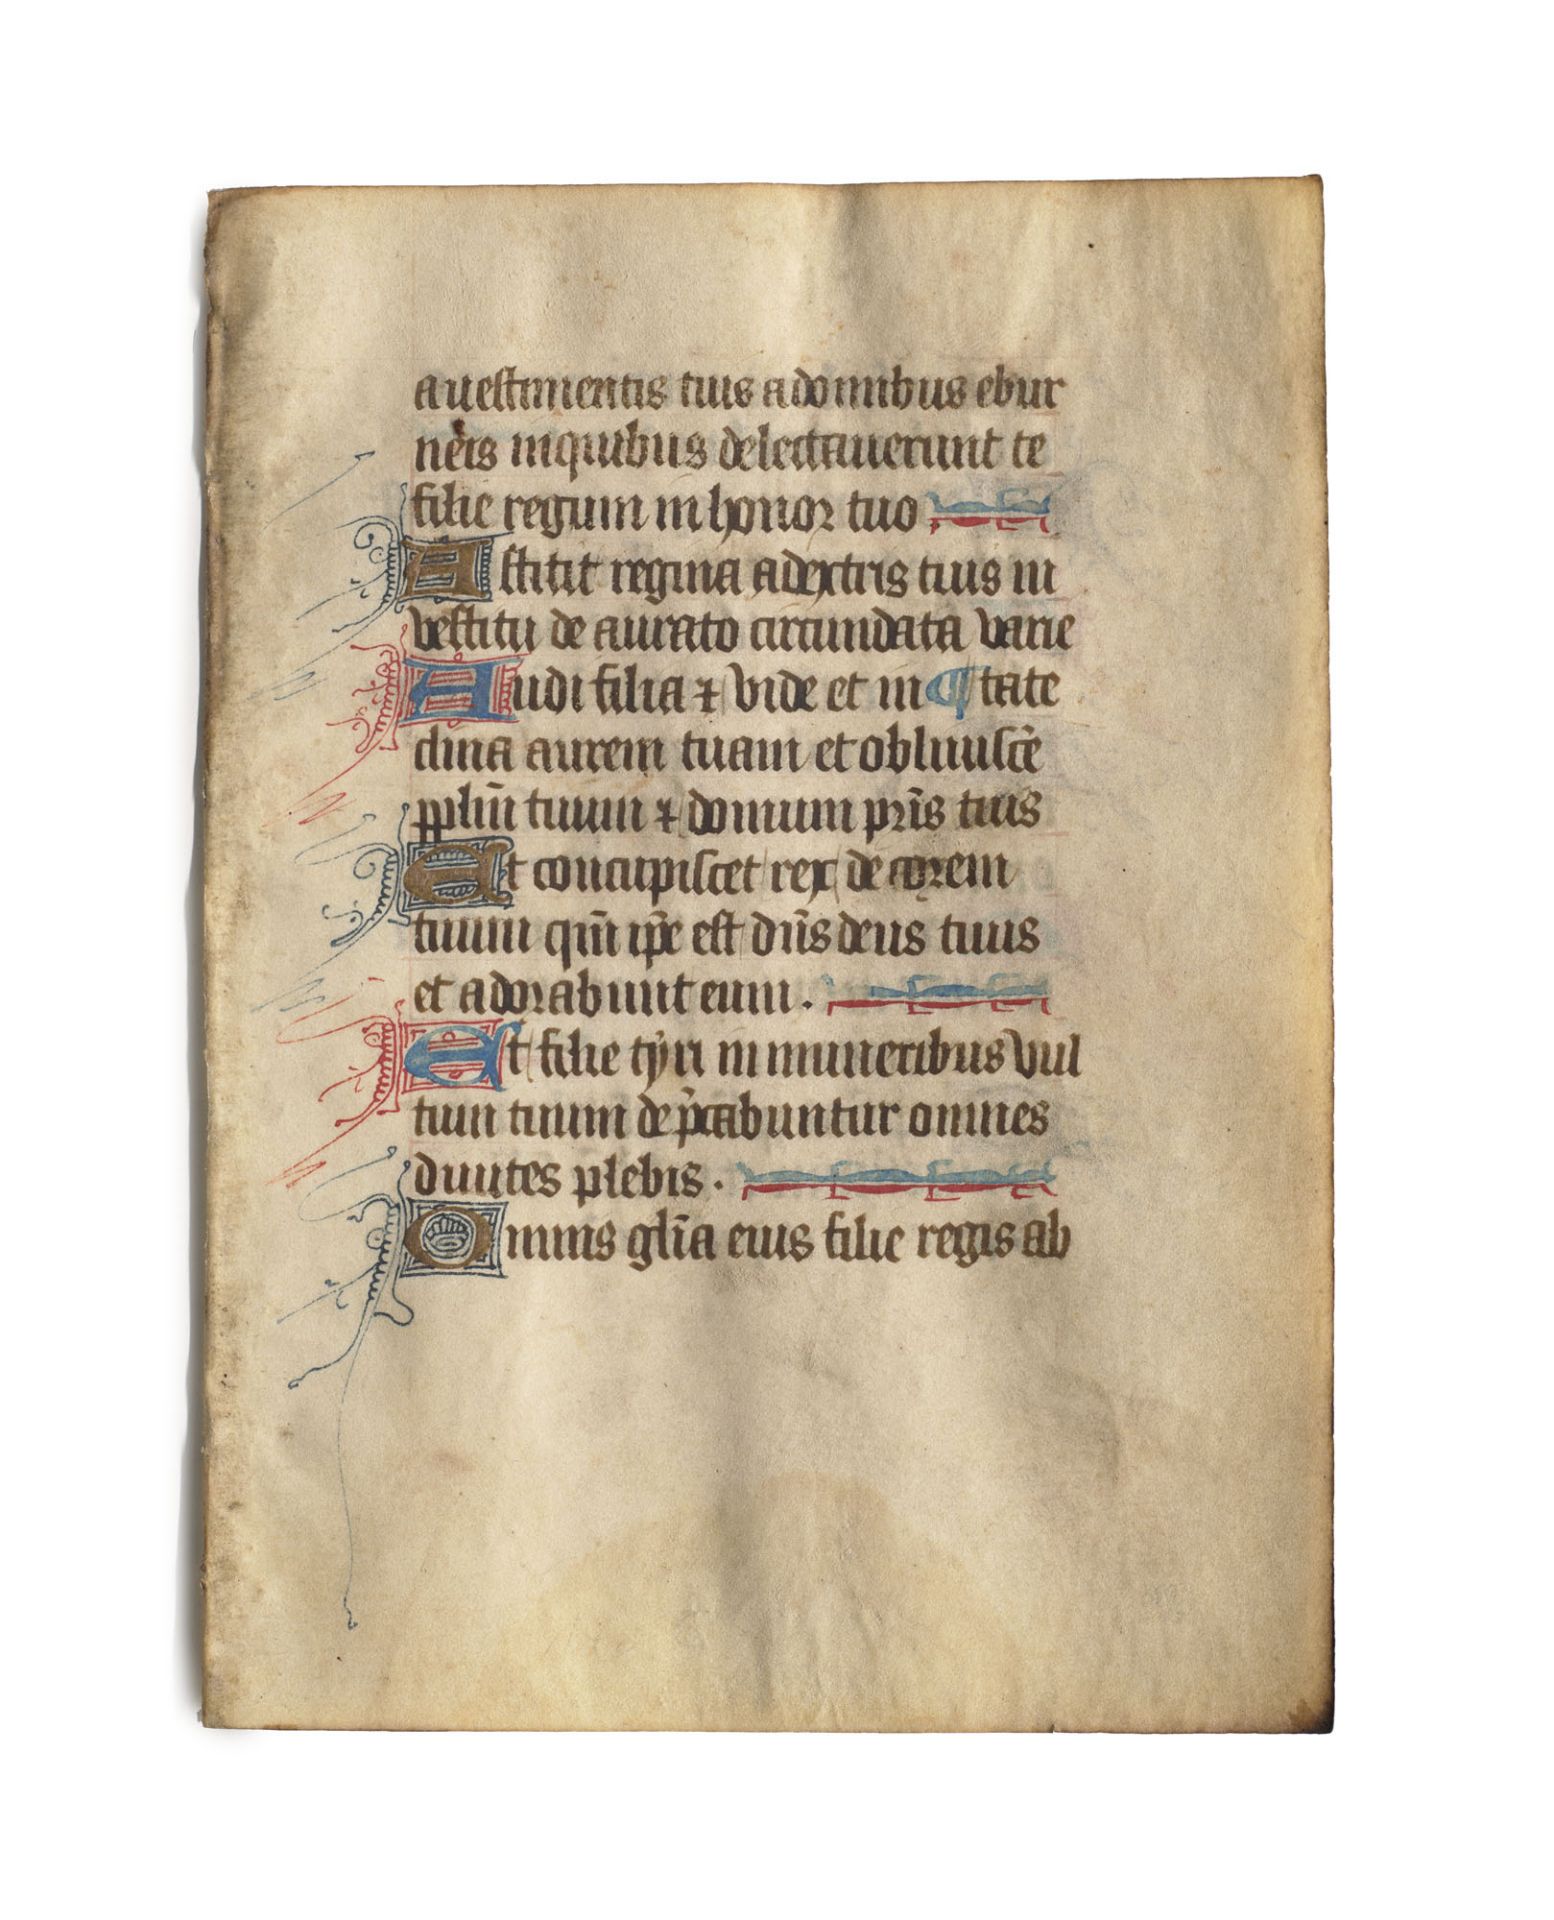 a uestimentis tuis a domibus ebur
neis in quibus delectauerunt te
filie regum in honor tuo
Astitit regina a dextris tuis in
vestitu de aurato circundata varie
Audi filia ⁊ vide et in ¶ tate
clina aurem tuam et obliuisce᷑
pplm̄ tuum ⁊ domum pr̄is tuis
Et concupiscet rex de corem
tuum qm̄ ip̄e est dn̄s deus tuus
et adorabunt eum.
Et filie tyri in muneribus vul
tum tuum dep̄cabuntur omnes
diuites plebis.
Omnis glīa eius filie regis ab